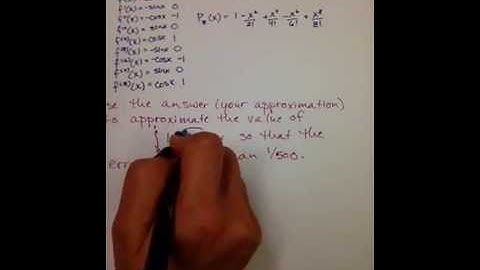 f'(x) = -sinx 0
f"(x) = -cosx -1
f'''(x) = sinx 0
f⁽⁴⁾(x) = cosx 1
f⁽⁵⁾(x) = -sinx 0
f⁽⁶⁾(x) = -cosx -1
f⁽⁷⁾(x) = sinx 0
f⁽⁸⁾(x) = cosx 1
P₈(x) = 1 - x²/2! + x⁴/4! - x⁶/6! + x⁸/8!
the answer (your approximation)
approximate the value of
∫ so that the
1/500.